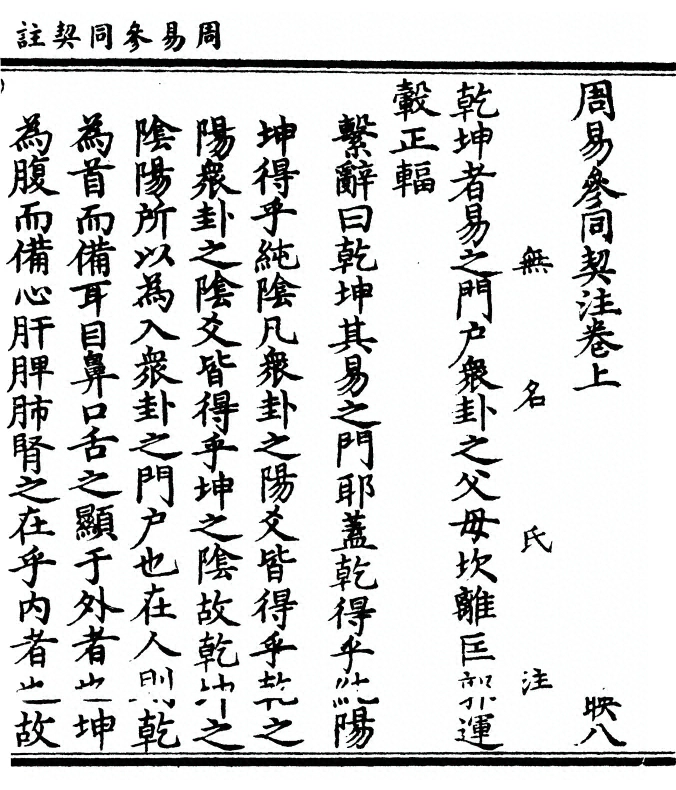 周易參同契註
周易參同契注卷上 映八
無名氏注
乾坤者易之門户衆卦之父母坎離匡郭運
轂正輻
繫辭曰乾坤其易之門耶蓋乾得乎純陽
坤得乎純陰凡衆卦之陽爻皆得乎乾之
陽衆卦之陰爻皆得乎坤之陰故乾坤之
陰陽所以為入衆卦之門户也在人則乾
為首而備耳目鼻口舌之顯于外者也坤
為腹而備心肝脾肺腎之在乎內者也故